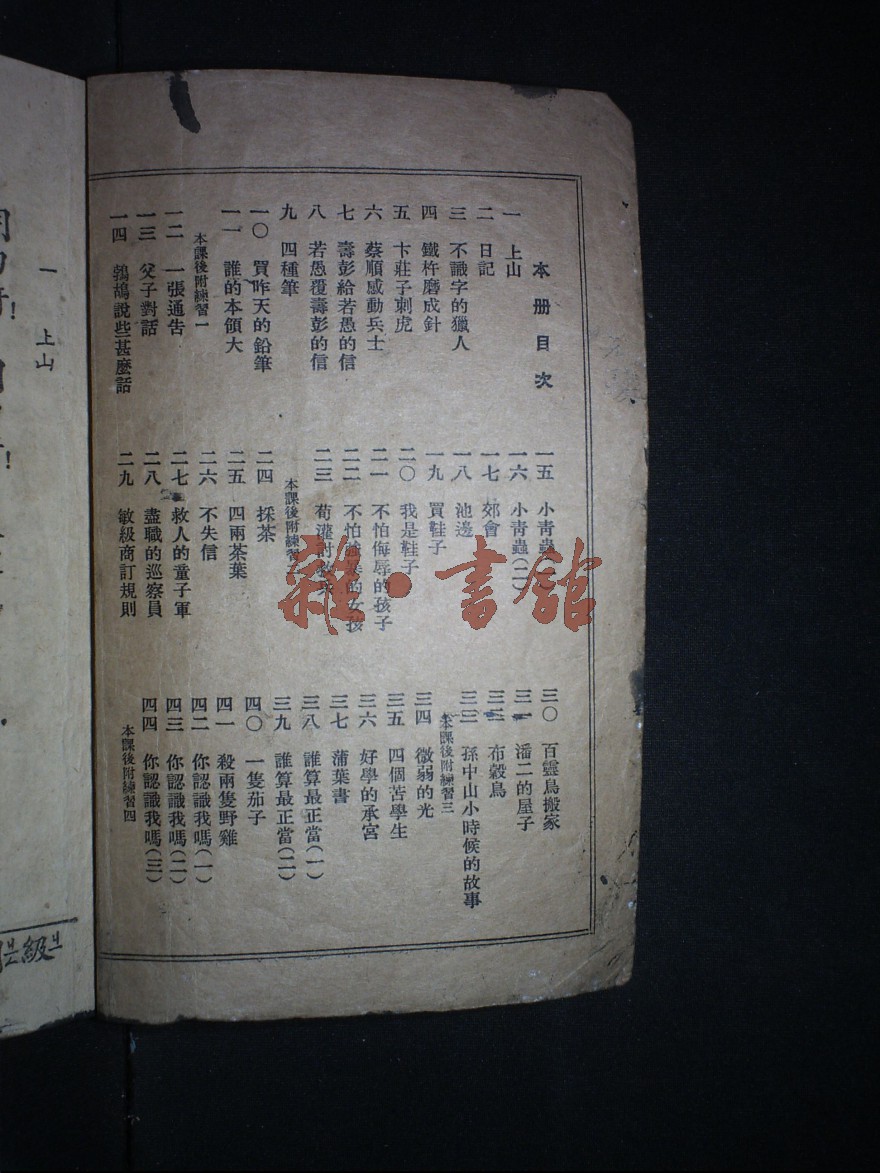 本册目次
一 上山
二 日記
三 不識字的獵人
四 鐵杵磨成針
五 卞莊子刺虎
六 蔡順感動兵士
七 壽彭給若愚的信
八 若愚覆壽彭的信
九 四種筆
一〇 買昨天的鉛筆
一一 誰的本領大
本課後附練習一
一二 一張通告
一三 父子對話
一四 鵓鴣說些甚麼話
一五 小青蟲(一)
一六 小青蟲(二)
一七 郊會
一八 池邊
一九 買鞋子
二〇 我是鞋子
二一 不怕侮辱的孩子
二二 不怕強暴的女孩
二三 荀灌討救兵
本課後附練習二
二四 採茶
二五 四兩茶葉
二六 不失信
二七 救人的童子軍
二八 盡職的巡察員
二九 敏級商訂規則
三〇 百靈鳥搬家
三一 潘二的屋子
三二 布穀鳥
三三 孫中山小時候的故事
本課後附練習三
三四 微弱的光
三五 四個苦學生
三六 好學的承宮
三七 蒲葉書
三八 誰算最正當(一)
三九 誰算最正當(二)
四〇 一隻茄子
四一 殺兩隻野雞
四二 你認識我嗎(一)
四三 你認識我嗎(二)
四四 你認識我嗎(三)
本課後附練習四
一 上山
雜·書館